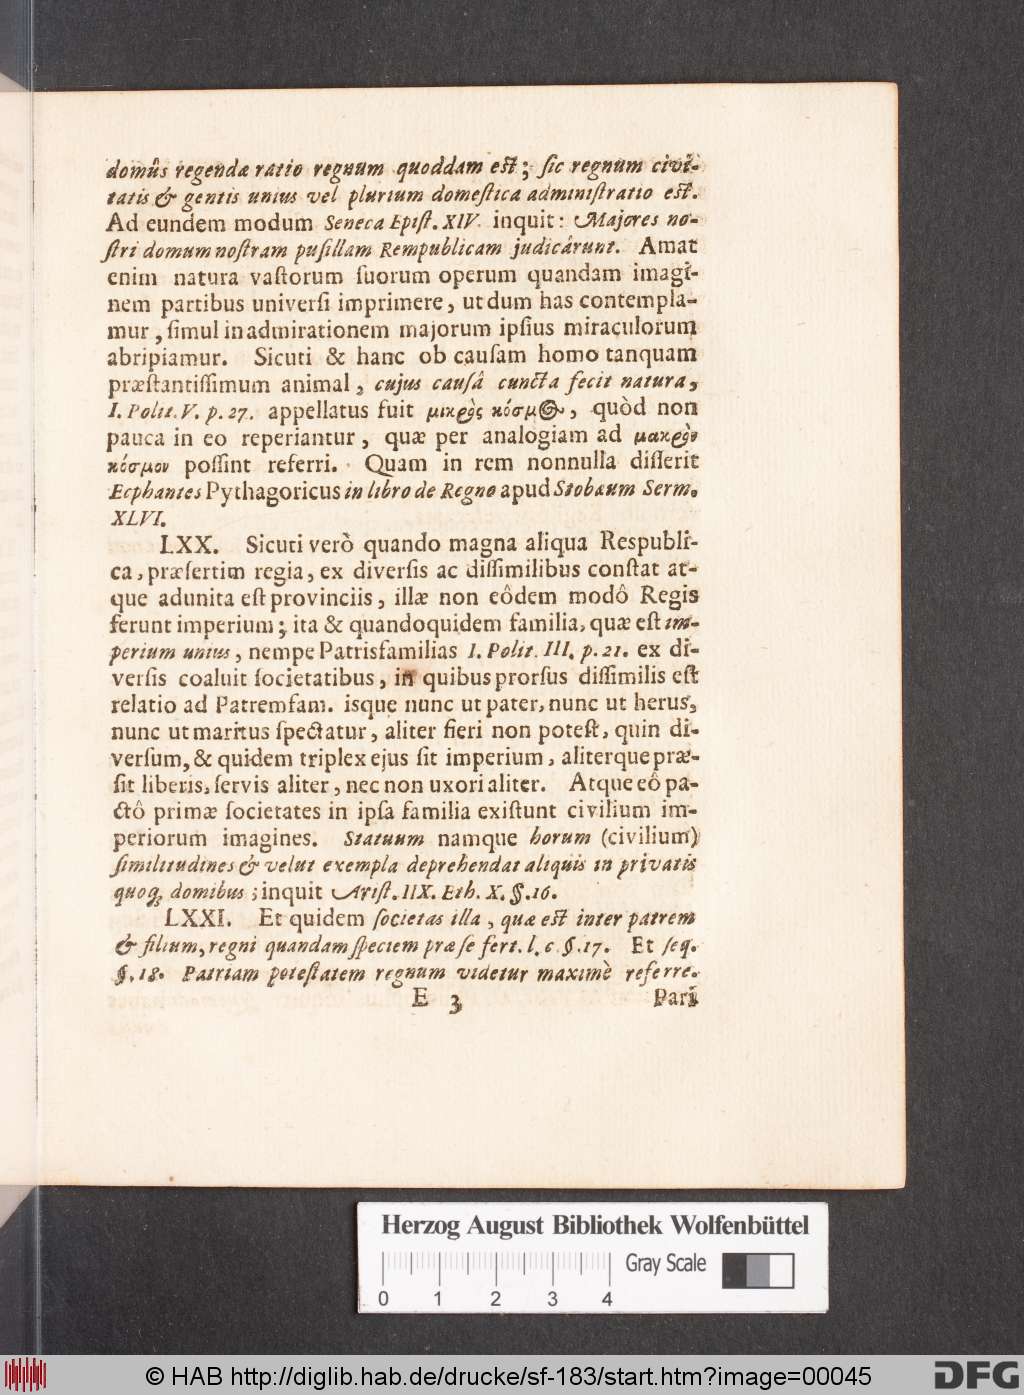 domûs regendæ ratio regnum quoddam est; sic regnum civi-
tatis & gentis unius vel plurium domestica administratio est.
Ad eundem modum Seneca Epist. XIV. inquit: Majores no-
stri domum nostram pusillam Rempublicam judicârunt. Amat
enim natura vastorum suorum operum quandam imagi-
nem partibus universi imprimere, ut dum has contempla-
mur, simul in admirationem majorum ipsius miraculorum
abripiamur. Sicuti & hanc ob causam homo tanquam
præstantissimum animal, cujus causâ cuncta fecit natura,
I. Polit. V. p. 27. appellatus fuit μικρὸς κόσμος, quòd non
pauca in eo reperiantur, quæ per analogiam ad μακρὸν
κόσμον possint referri. Quam in rem nonnulla disserit
Ecphantes Pythagoricus in libro de Regno apud Stobæum Serm.
XLVI.
LXX. Sicuti verò quando magna aliqua Respubli-
ca, præsertim regia, ex diversis ac dissimilibus constat at-
que adunita est provinciis, illæ non eôdem modô Regis
ferunt imperium; ita & quandoquidem familia, quæ est im-
perium unius, nempe Patrisfamilias I. Polit. III. p. 21. ex di-
versis coaluit societatibus, in quibus prorsus dissimilis est
relatio ad Patremfam. isque nunc ut pater, nunc ut herus,
nunc ut maritus spectatur, aliter fieri non potest, quin di-
versum, & quidem triplex ejus sit imperium, aliterque præ-
sit liberis, servis aliter, nec non uxori aliter. Atque eô pa-
ctô primæ societates in ipsa familia existunt civilium im-
periorum imagines. Statuum namque horum (civilium)
similitudines & velut exempla deprehendat aliquis in privatis
quoq; domibus; inquit Arist. IIX. Eth. X. §. 16.
LXXI. Et quidem societas illa, quæ est inter patrem
& filium, regni quandam speciem præ se fert. l. c. §. 17. Et seq.
§. 18. Patriam potestatem regnum videtur maximè referre.
E 3 Pari
Herzog August Bibliothek Wolfenbüttel
Gray Scale
0 1 2 3 4
© HAB http://diglib.hab.de/drucke/sf-183/start.htm?image=00045
DFG